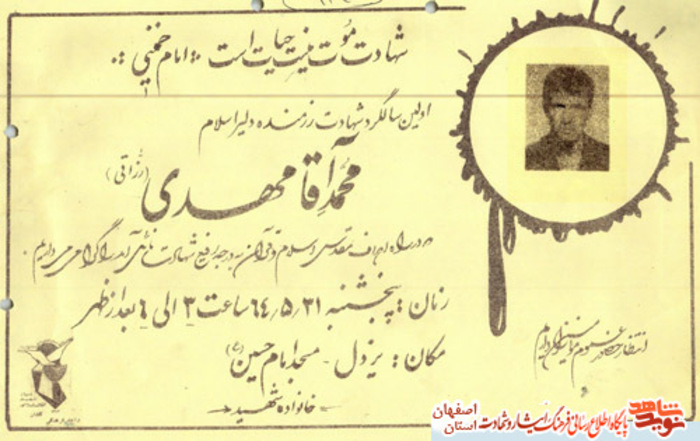 شهادت موت نیست حیات است «امام خمینی»
اولین سالگرد شهادت رزمنده دلیر اسلام
محمد آقا مهدی (رزاقی)
در راه اهداف مقدس اسلام و قرآن به درجه رفیع شهادت نائل آمد را گرامی می‌داریم.
زمان: پنجشنبه ۶۴٫۵٫۳۱ ساعت ۳ الی ۶ بعد از ظهر
مکان: یزدل - مسجد امام حسین (ع)
خانواده شهید
انتظار حضور عموم
نوید شاهد
پایگاه اطلاع رسانی فرهنگ ایثار و شهادت
استان اصفهان